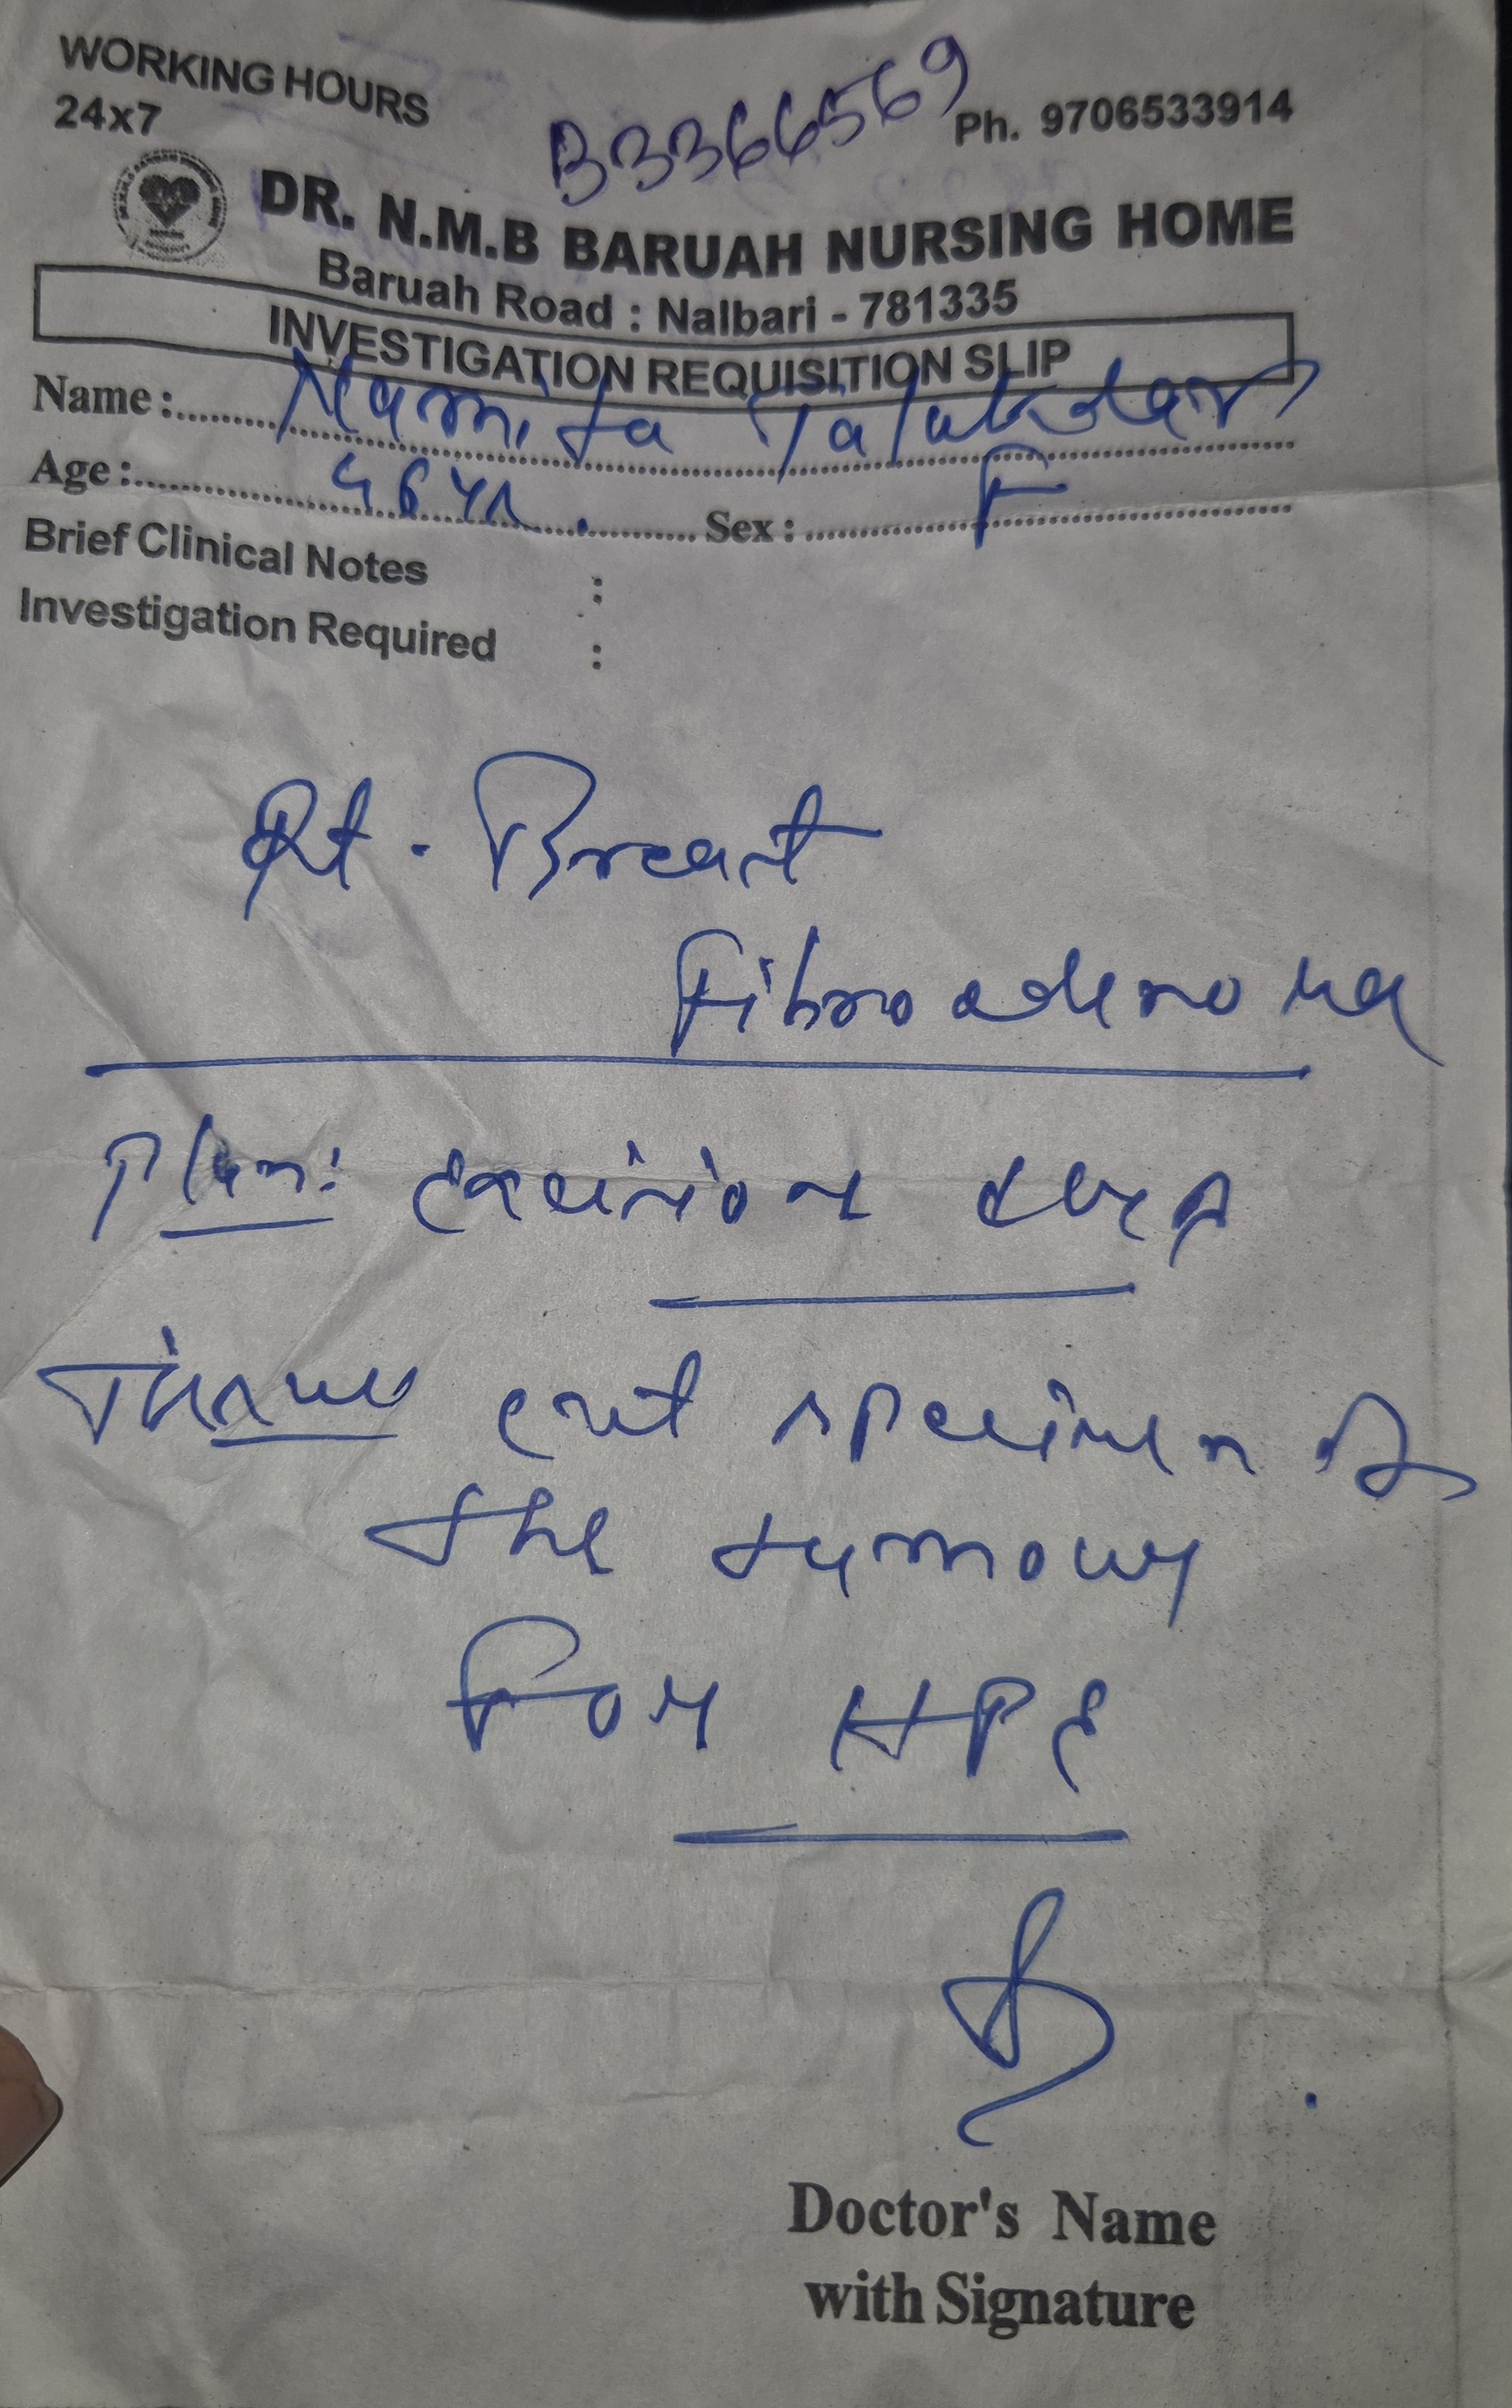 WORKING HOURS
24x7
B3366569
Ph. 9706533914
DR. N.M.B BARUAH NURSING HOME
Baruah Road : Nalbari - 781335
INVESTIGATION REQUISITION SLIP
Name : Namita Talukdar
Age : 46 yr. Sex : F
Brief Clinical Notes :
Investigation Required :
Rt. Breast
Fibroadenoma
Plan: excision
Tissue cut specimen of
the tumour
For HPE
Doctor's Name
with Signature